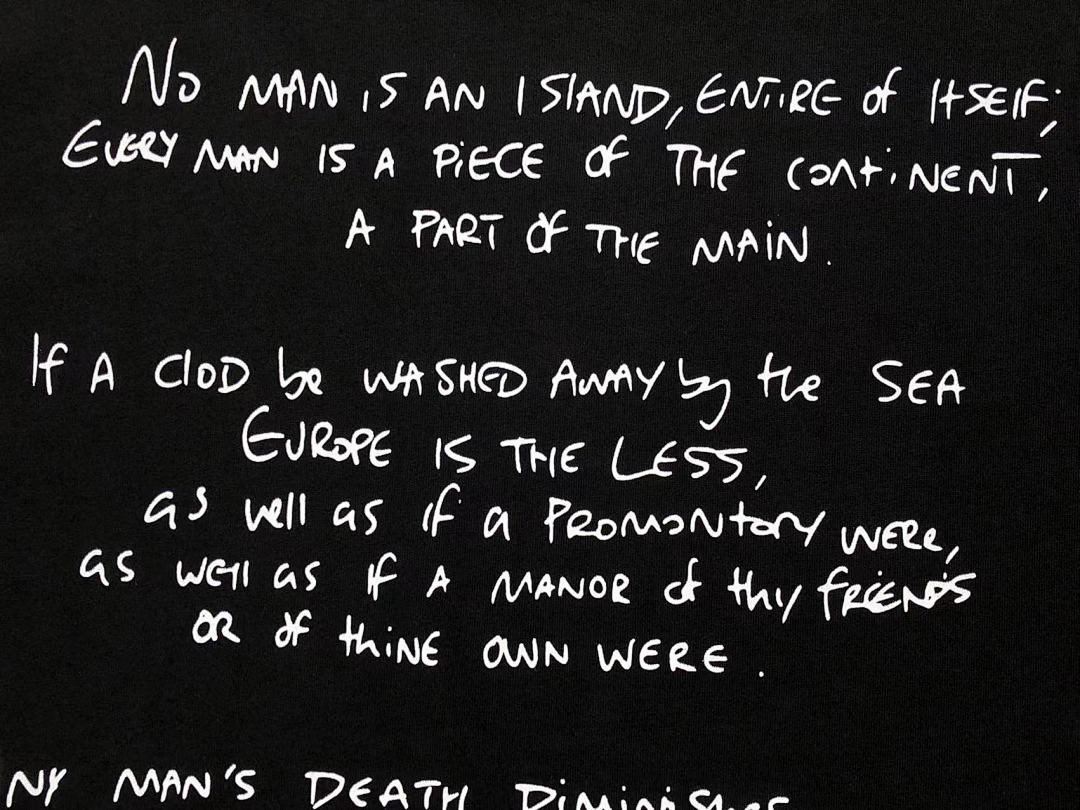 No MAN iS AN ISlAND, ENTiRE of ItSElF;
EVERY MAN IS A PiECE of THE ContiNENT,
A PART of THE MAiN.
If A ClOD be WASHED AWAY by the SEA
EUROPE IS THE LESS,
as well as if a PROMONtORY WERE,
as well as If A MANOR of thy fRiENDS
OR of thiNE OWN WERE.
NY MAN'S DEATH DiMiNiShes